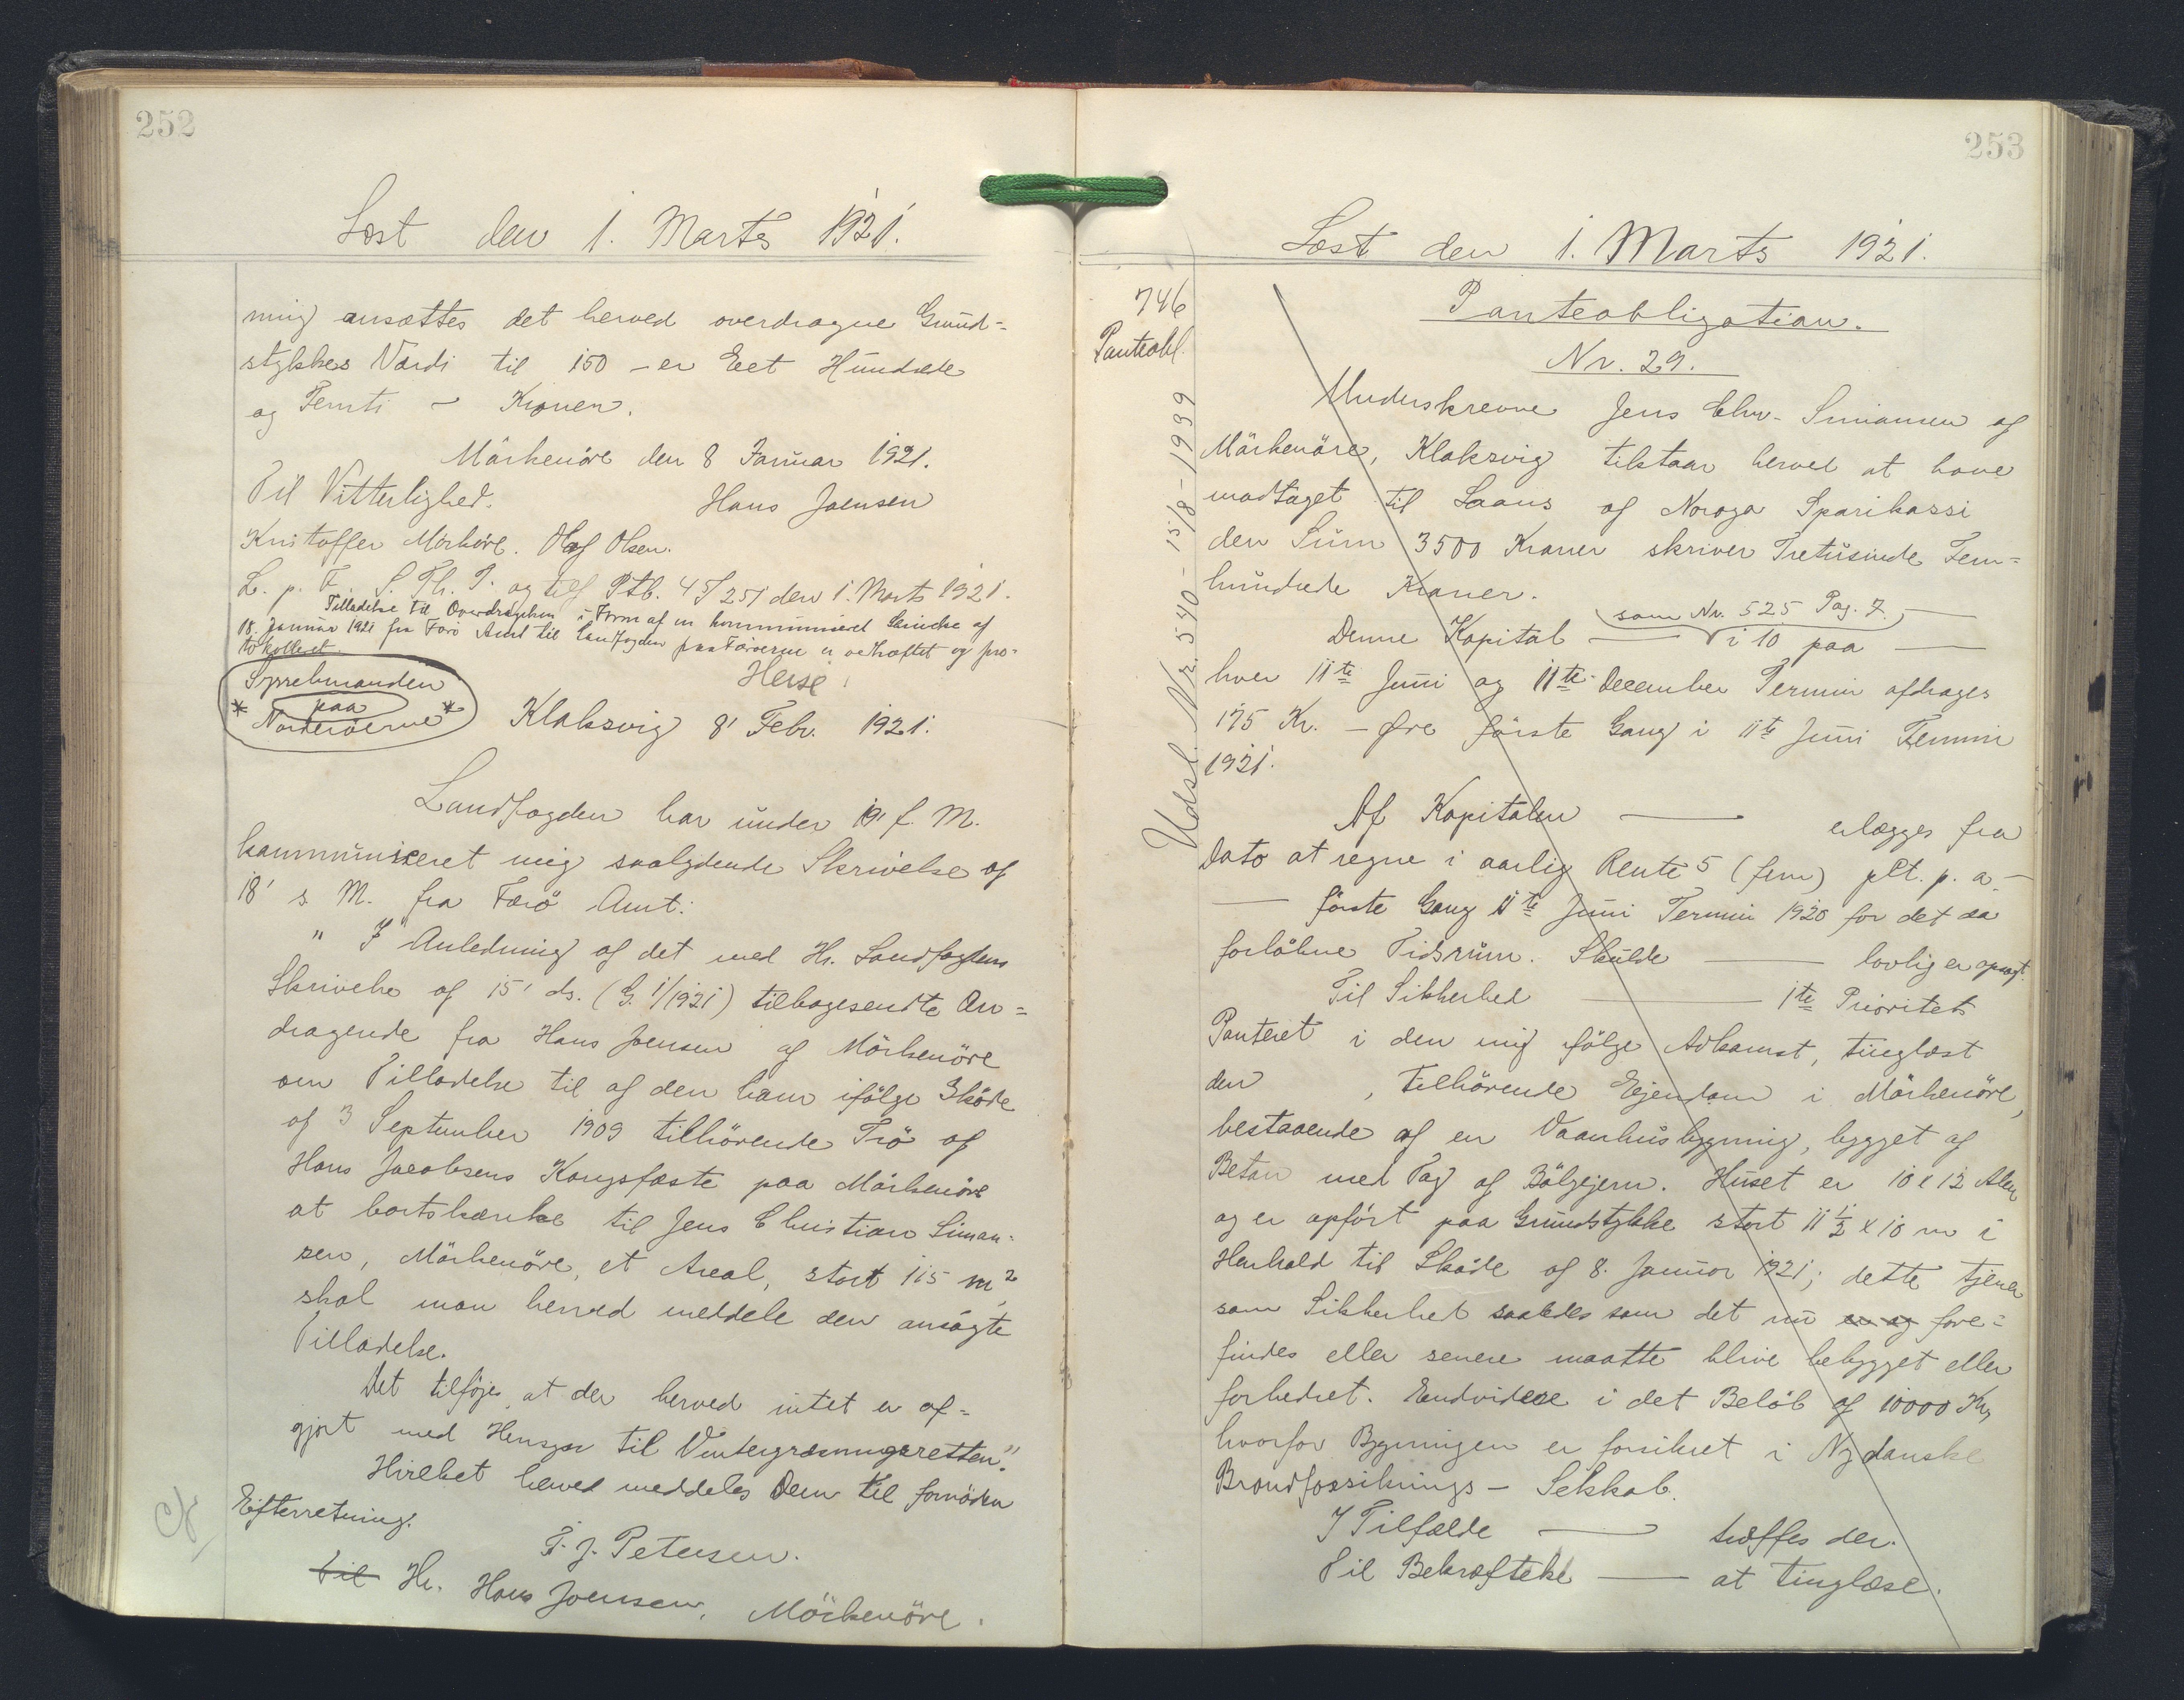 252
Læst den 1. Marts 1921.
ning ansættes det herved overdragne Grund=
stykkes Værdi til 150 - er Eet Hundrede
og Femti - Kroner.
Mörkenöre den 8 Januar 1921.
Til Vitterlighed. Hans Joensen
Kristoffer Mörköre. Olaf Olsen.
L. p. F. S. Th. P. og tilf Ptb. 4 S 251 den 1. Marts 1921.
Tilladelse til Overdragelsen i Form af en kommuniceret Skrivelse af
18. Januar 1921 fra Færö Amt til Landfogden paa Færöerne er vehæftet og pro=
tokolleret.
Heise
Sysselmanden
* paa *
Norderöerne
Klaksvig 8' Febr. 1921.
Landfogden har under 19' f. M.
kommuniceret mig saalydende Skrivelse af
18' s. M. fra Færö Amt:
" I Anledning af det med Hr. Landfogdens
Skrivelse af 15' ds. (G. 1/1921) tilbagesendte An=
dragende fra Hans Joensen af Mörkenöre
om Tilladelse til af den ham ifölge Sköde
af 3 September 1909 tilhörende Trö af
Hans Jacobsens Kongsfæste paa Mörkenöre
at bortskænke til Jens Christian Siman=
sen, Mörkenöre, et Areal, stort 115 m²,
skal man herved meddele den ansögte
Tilladelse.
Det tilföjes, at der herved intet er af=
gjort med Hensyn til Vintergræsningsretten."
Hvilket herved meddeles Dem til fornöden
Efterretning.
P. J. Petersen.
Til Hr. Hans Joensen, Mörkenöre.
253
Læst den 1. Marts 1921.
746
Panteobl.
Udsl. Nr. 540 - 15/8 - 1939
Panteobligation.
Nr. 29.
Underskrevne Jens Chr. Simansen af
Mörkenöre, Klaksvig tilstaar herved at have
modtaget til Laans af Noroya Sparikassi
den Sum 3500 Kroner skriver Tretusinde Fem=
hundrede Kroner.
som Nr. 525 Pag. 7.
Denne Kapital — i 10 paa —
hver 11te Juni og 11te December Termin afdrages
175 Kr. - Øre förste Gang i 11te Juni Termin
1921.
Af Kapitalen — erlægges fra
Dato at regne i aarlig Rente 5 (fem) pCt. p. a. -
— förste Gang 11te Juni Termin 1920 for det da
forlöbne Tidsrum. Skulde — lovlig er opsagt.
Til Sikkerhed — 1te Prioritets
Panteret i den mig ifölge Adkomst, tinglæst
den , tilhörende Ejendom i Mörkenöre,
bestaaende af en Vaanhusbygning, bygget af
Beton med Tag af Bölgejern. Huset er 10 x 12 Alen
og er opfört paa Grundstykke stort 11 1/2 x 10 m i
Henhold til Sköde af 8. Januar 1921; dette tjener
som Sikkerhed saaledes som det nu er og fore=
findes eller senere maatte blive bebygget eller
forbedret. Endvidere i det Belöb af 10000 Kr,
hvorfor Bygningen er forsikret i Ny danske
Brandforsikrings - Selskab.
I Tilfælde — træffes der.
Til Bekræftelse — at tinglæse.